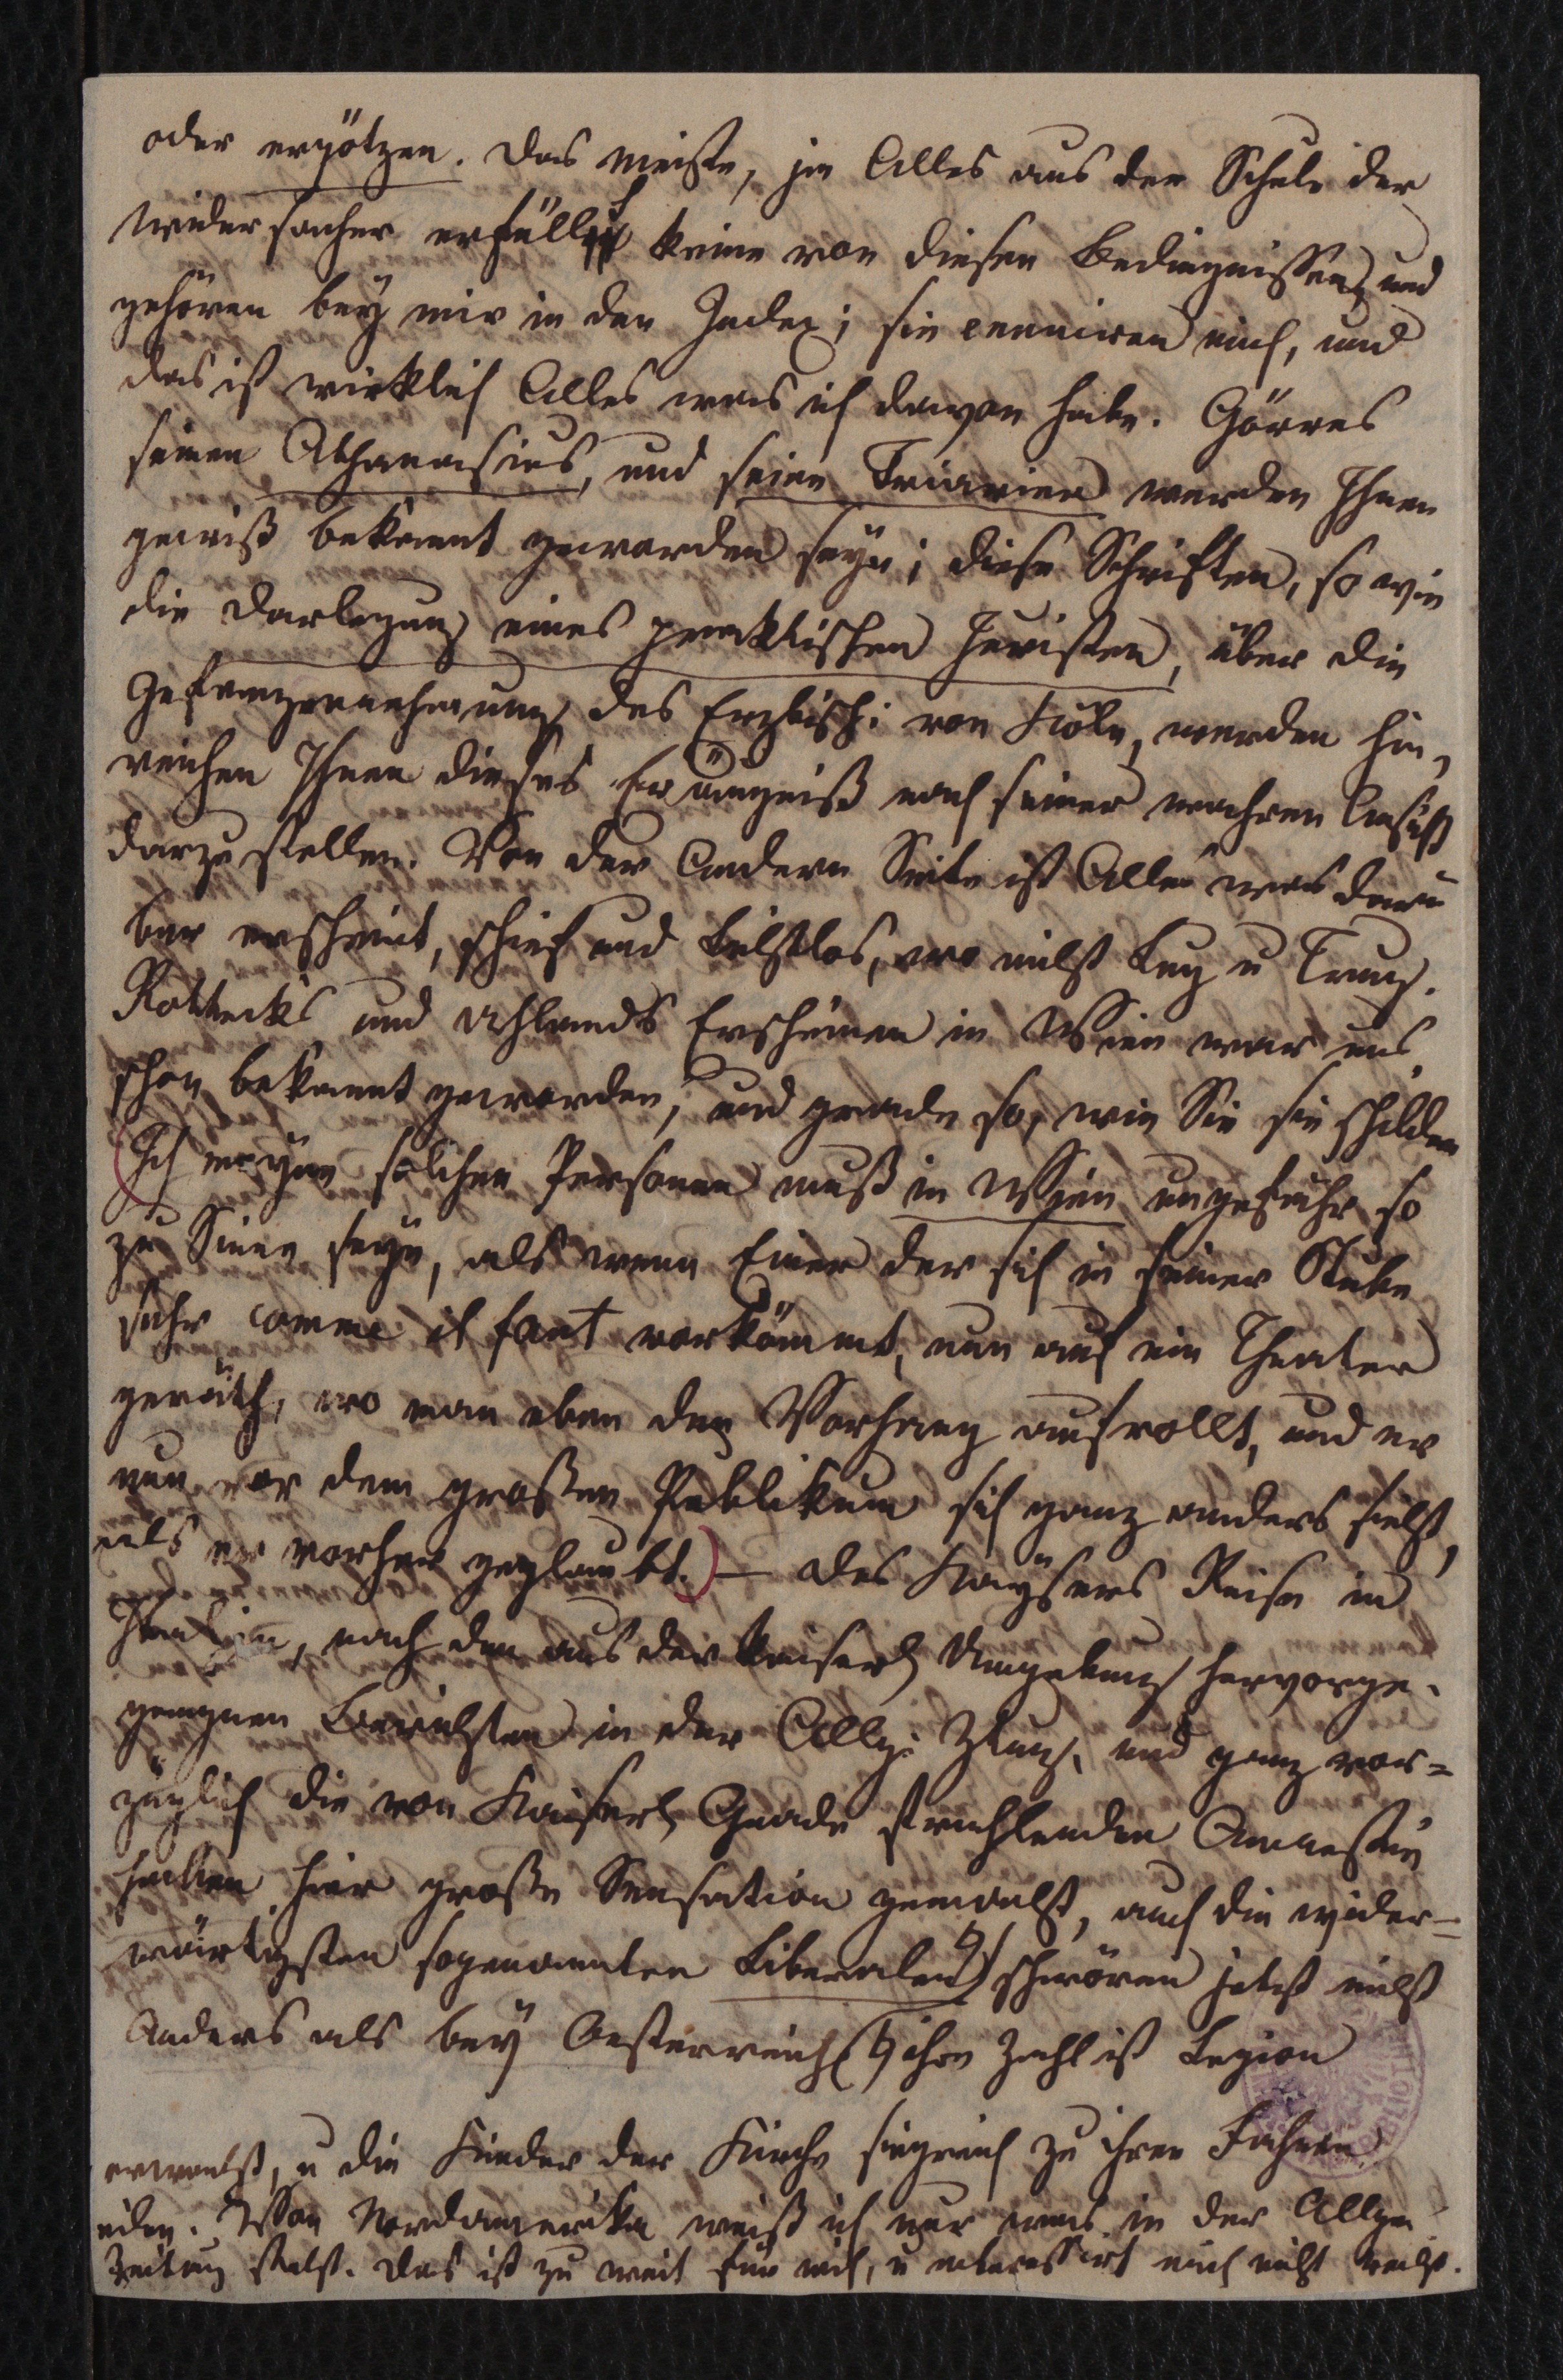 oder ergötzen. Das meiste, ja Alles aus der Schule der
Widersacher erfüllt keine von diesen Bedingnissen, und
gehören bey mir in den Index; sie ennuiren mich, und
das ist wirklich Alles was ich davon habe. Görres
seinen Athanasius, und seine Triarier werden Ihnen
gewiß bekannt geworden seyn; diese Schriften, so wie
die Darlegung eines praktischen Juristen, über die
Gefangennehmung des Erzbisch: von Köln, werden hin,
reichen Ihnen dieses Eräugniß nach seiner wahren Ansicht
darzustellen. Von der Andern Seite ist Alles was darü
ber erscheint, schief und lichtlos, wo nicht Lug u Trug.
Rotteck's und Uhlands Erscheinen in Wien war uns
schon bekannt geworden, und grade so, wie Sie sie schildern
(Ich meyne solchen Personen muß in Wien ungefähr so
zu Sinne seyn, als wenn Einer der sich in seiner Stube
sehr comme il faut vorkömmt, nun auf ein Theater
geräth, wo man eben den Vorhang aufrollt, und er
nun vor dem großen Publikum sich ganz anders sieht,
als er vorher geglaubt.) – Des Kaysers Reise in
Italien, nach den aus der kaiserl Umgebung hervorge-
gangnen Berichten in der Allg: Ztung, und ganz vor=
züglich die von Kaiserl Gnade strahlenden Amnestie
haben hier große Sensation gemacht, auch die wider=
wärtigsten sogenannten Liberalen schwören jetzt nicht
Anders als bey Oesterreich ( ihre Zahl ist Legion
erwacht, u die Kinder der Kirche siegreich zu ihren Fahnen
eilen. Von Nordamerika weiß ich nur was in der Allge
Zeitung steht. Das ist zu weit für mich, u interessirt mich nicht recht.